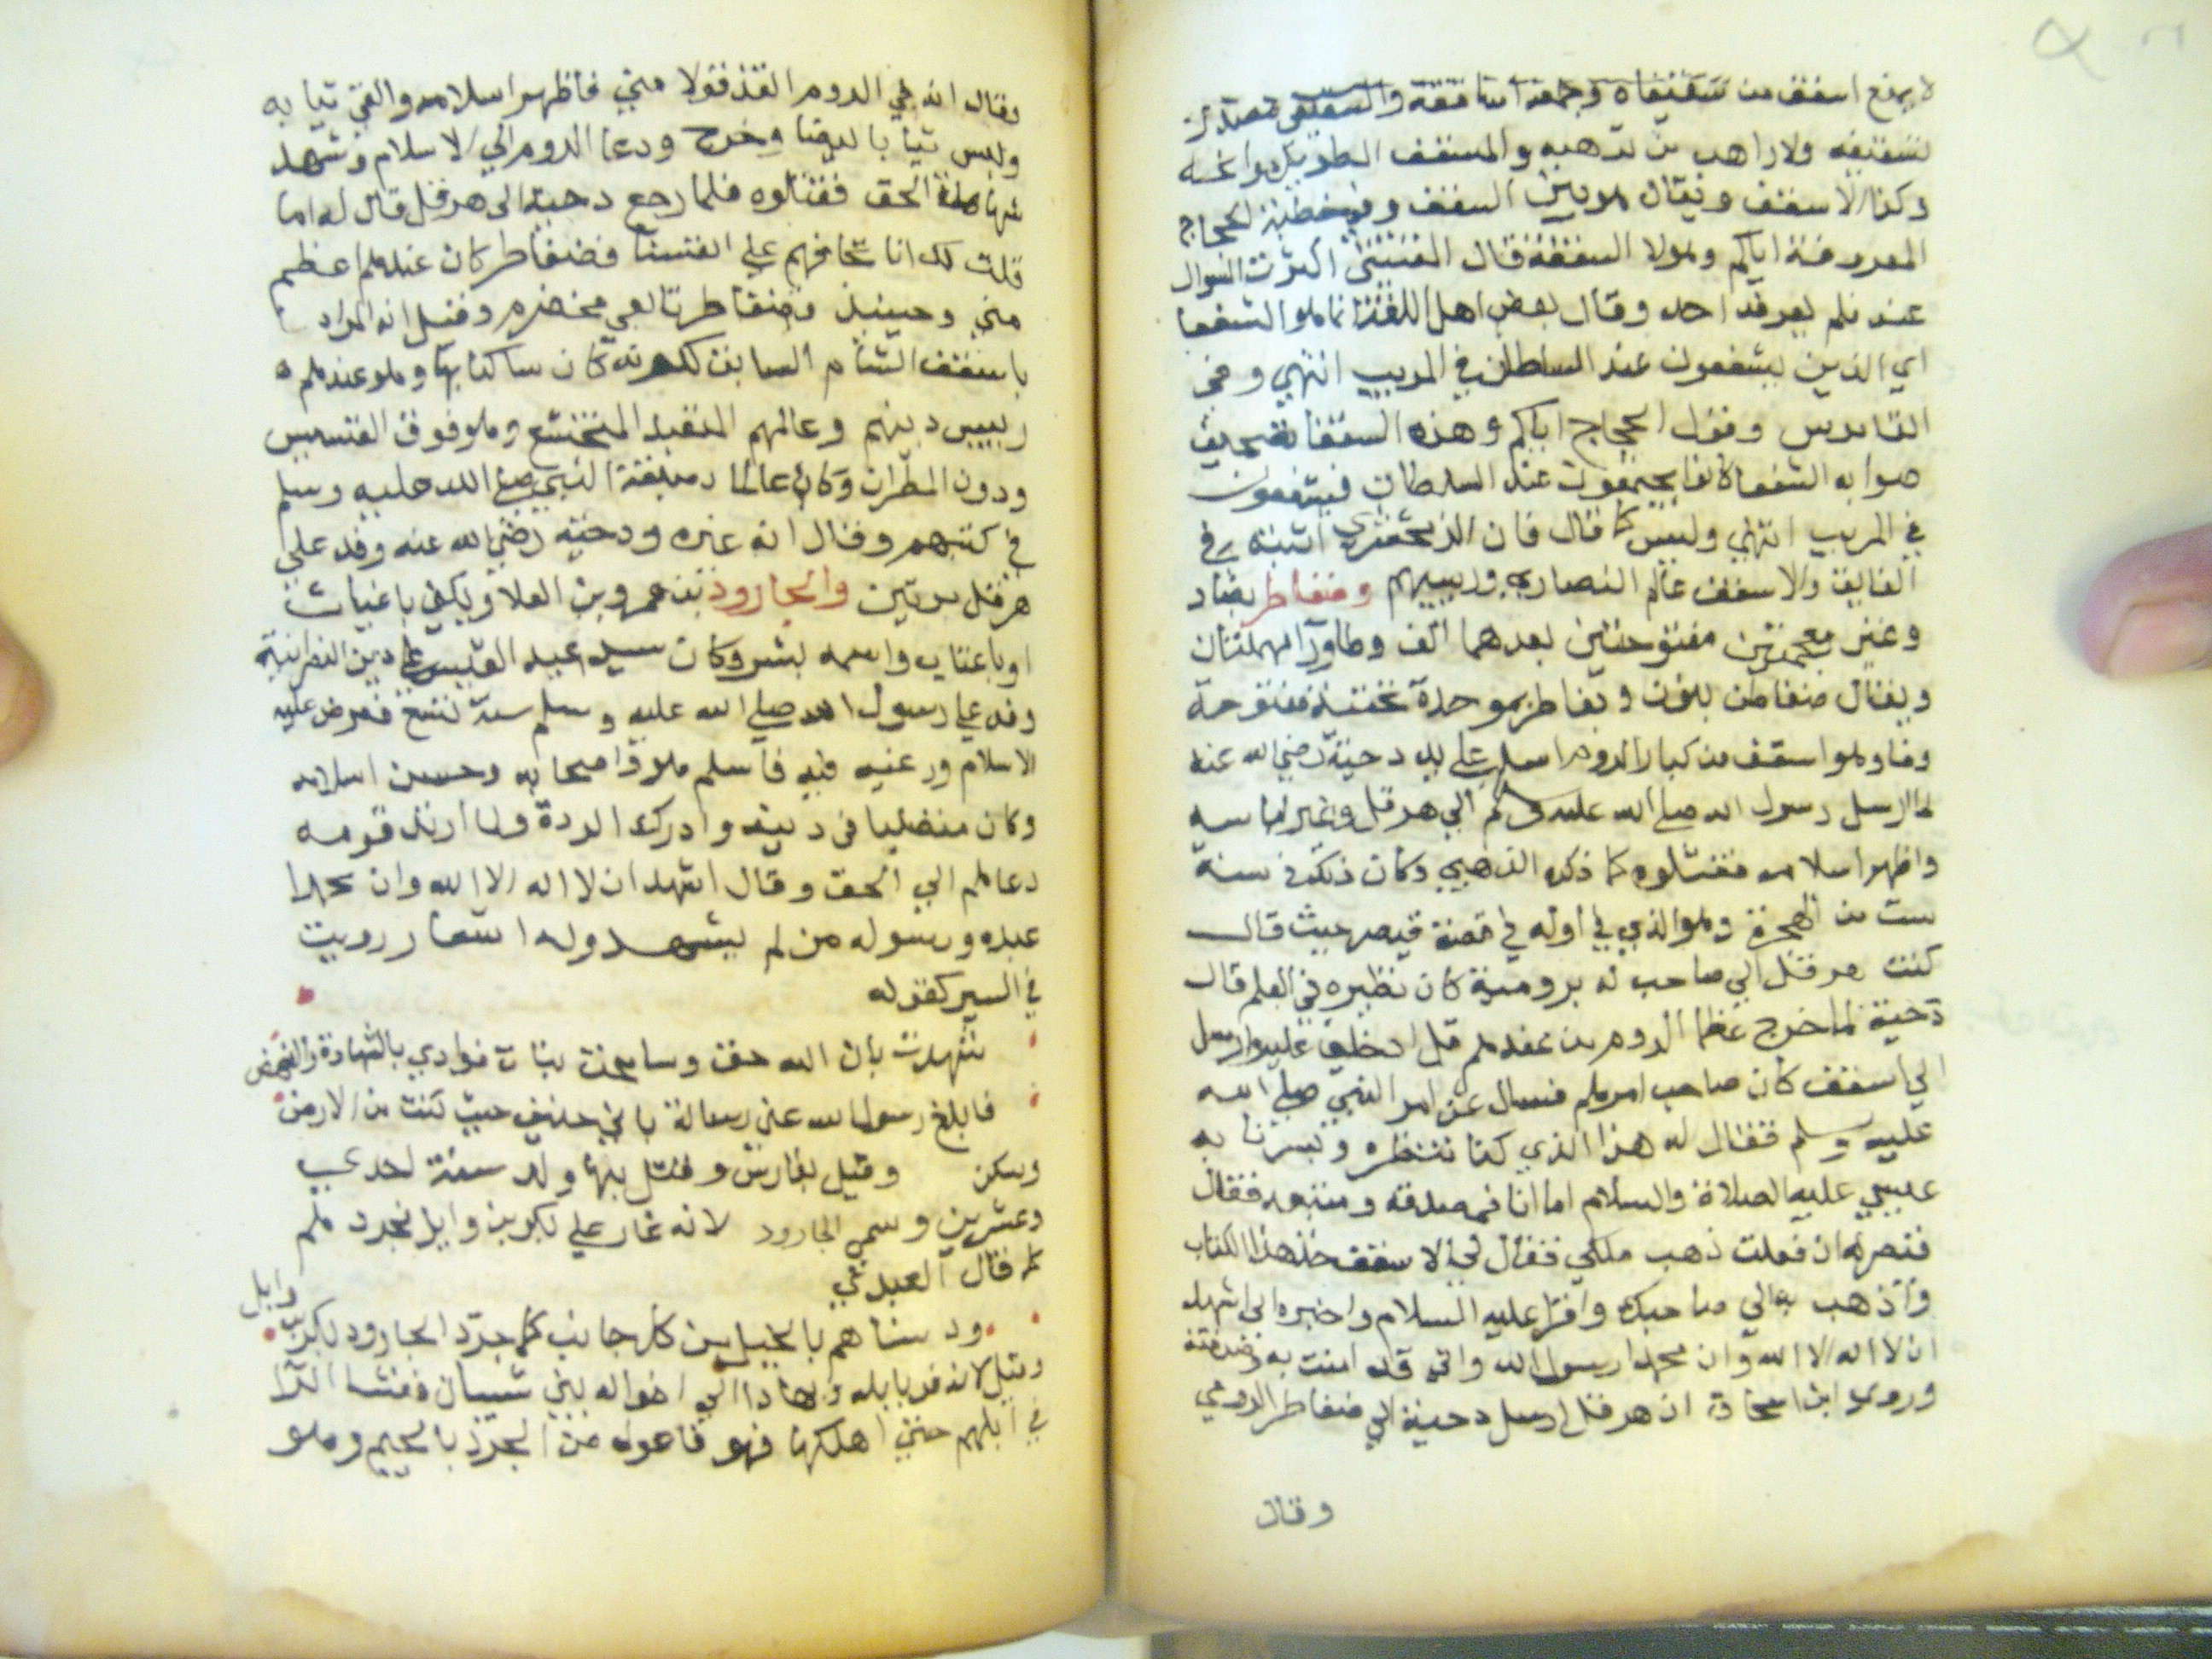 لا يمنع اسقف من سقيفاه وجمعه اساقفة والسقيفى مصدر
سقيفه ولا راهب من ترهبه والمسقف الطويل
وكذا الاسقف ويقال هو بين السقف وفي خطبة الحجاج
المعروفة اياكم وهولا السقفة قال القتيبى اكثرت السوال
عنه فلم يعرفه احد وقال بعض اهل اللغة انما هو الشفعا
اي الذين يشفعون عند السلطان في المريب انتهي وفي
القاموس وقول الحجاج اياكم وهذه السقفا تصحيف
صوابه الشفعا كانوا يجتمعون عند السلطان فيشفعون
في المريب انتهي وليس كما قال فان الزمخشري اثبته في
الفايق والاسقف عالم النصاري ورييسهم وضغاطر بضاد
وغين معجمتين مفتوحتين بعدهما الف وطا ورا مهملتان
ويقال ضغاطن بنون وبغاطر بموحدة تحتية مفتوحة
وفا وهو اسقف من كبار الروم اسلم علي يد دحية رضي الله عنه
لما ارسل رسول الله صلي الله عليه وسلم الي هرقل وغير لباسه
واظهر اسلامه فقتلوه كما ذكره الذهبي وكان ذلك في سنة
ست من الهجرة وهو الذي في اوله في قصة قيصر حيث قال
كتب هرقل الي صاحب له برومية كان نظيره في العلم قال
دحية لما خرج عظما الروم من عند هرقل ادخلني عليه وارسل
الي اسقف كان صاحب امرهم فسال عن امر النبي صلي الله
عليه وسلم فقال له هذا الذي كنا ننتظره وبشرنا به
عيسي عليه الصلاة والسلام اما انا فمصدقه ومتبعه فقال
قيصر انه ان فعلت ذهب ملكي فقال لي الاسقف خذ هذا الكتاب
واذهب به الي صاحبك واقرا عليه السلام واخبره اني اشهد
ان لا اله الا الله وان محمدا رسول الله واني قد امنت به وصدقته
وروي ابن اسحاق ان هرقل ارسل دحية الي ضغاطر الرومي
وقال
وقال انه في الروم انفذ قولا مني فاظهر اسلامه والقي ثيابه
ولبس ثيابا بيضا وخرج ودعا الروم الي الاسلام وشهد
شهادة الحق فقتلوه فلما رجع دحية الي هرقل قال له اما
قلت لك انا نخافهم علي انفسنا فضغاطر كان عندهم اعظم
مني وحينيذ فضغاطر تابعي مخضرم وقيل انه المراد
باسقف الشام السابق لكونه كان ساكنا بها وهو عندهم
رييس دينهم وعالمهم المتقيد المتخشع وهو فوق القسيس
ودون المطران وكان عالما بصفة النبي صلي الله عليه وسلم
في كتبهم وقال انه غيره ودحية رضي الله عنه وفد علي
هرقل مرتين والجارود بن عمرو بن العلا ويكني با غياث
او با عتاب واسمه بشر وكان سيد عبد القيس علي دين النصرانية
وفد علي رسول الله صلي الله عليه وسلم سنة تسع فعرض عليه
الاسلام ورغبه فيه فاسلم هو واصحابه وحسن اسلامه
وكان متصلبا في دينه وادرك الردة ولما ارتد قومه
دعاهم الي الحق وقال اشهد ان لا اله الا الله وان محمدا
عبده ورسوله من لم يشهد وله اشعار رويت
في السير كقوله
شهدت بان الله حق وسامحت بنات فوادي بالشهادة والنهض
فابلغ رسول الله عني رسالة باني حنيف حيث كنت من الارض
وسكن وقتل بفارس وقتل بها ولد سنة احدي
وعشرين وسمي الجارود لانه غار علي بكر بن وايل فجردهم
كما قال العبدي
ودسناهم بالخيل من كل جانب كما جرد الجارود بكر بن وايل
وقيل لانه فر بابله وبها دا الي اخواله بني شيبان ففشا الدا
في ابلهم حتي اهلكها فهو فاعول من الجرد بالجيم وهو